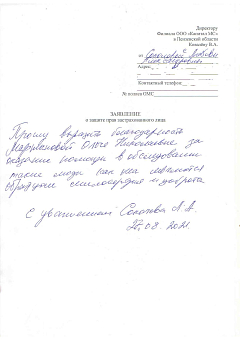 Директору
Филиала ООО «Капитал МС»
в Пензенской области
Кошкину В.А.
от Соколовой Любови
Адрес
Контактный телефон:
№ полиса ОМС
ЗАЯВЛЕНИЕ
о защите прав застрахованного лица
Прошу выразить благодарность
Марьяновой Ольге Николаевне за
оказание помощи в обследовании
такие люди как она являются
образцом милосердия и доброты
С уважением Соколова Л.А.
27.08.2021